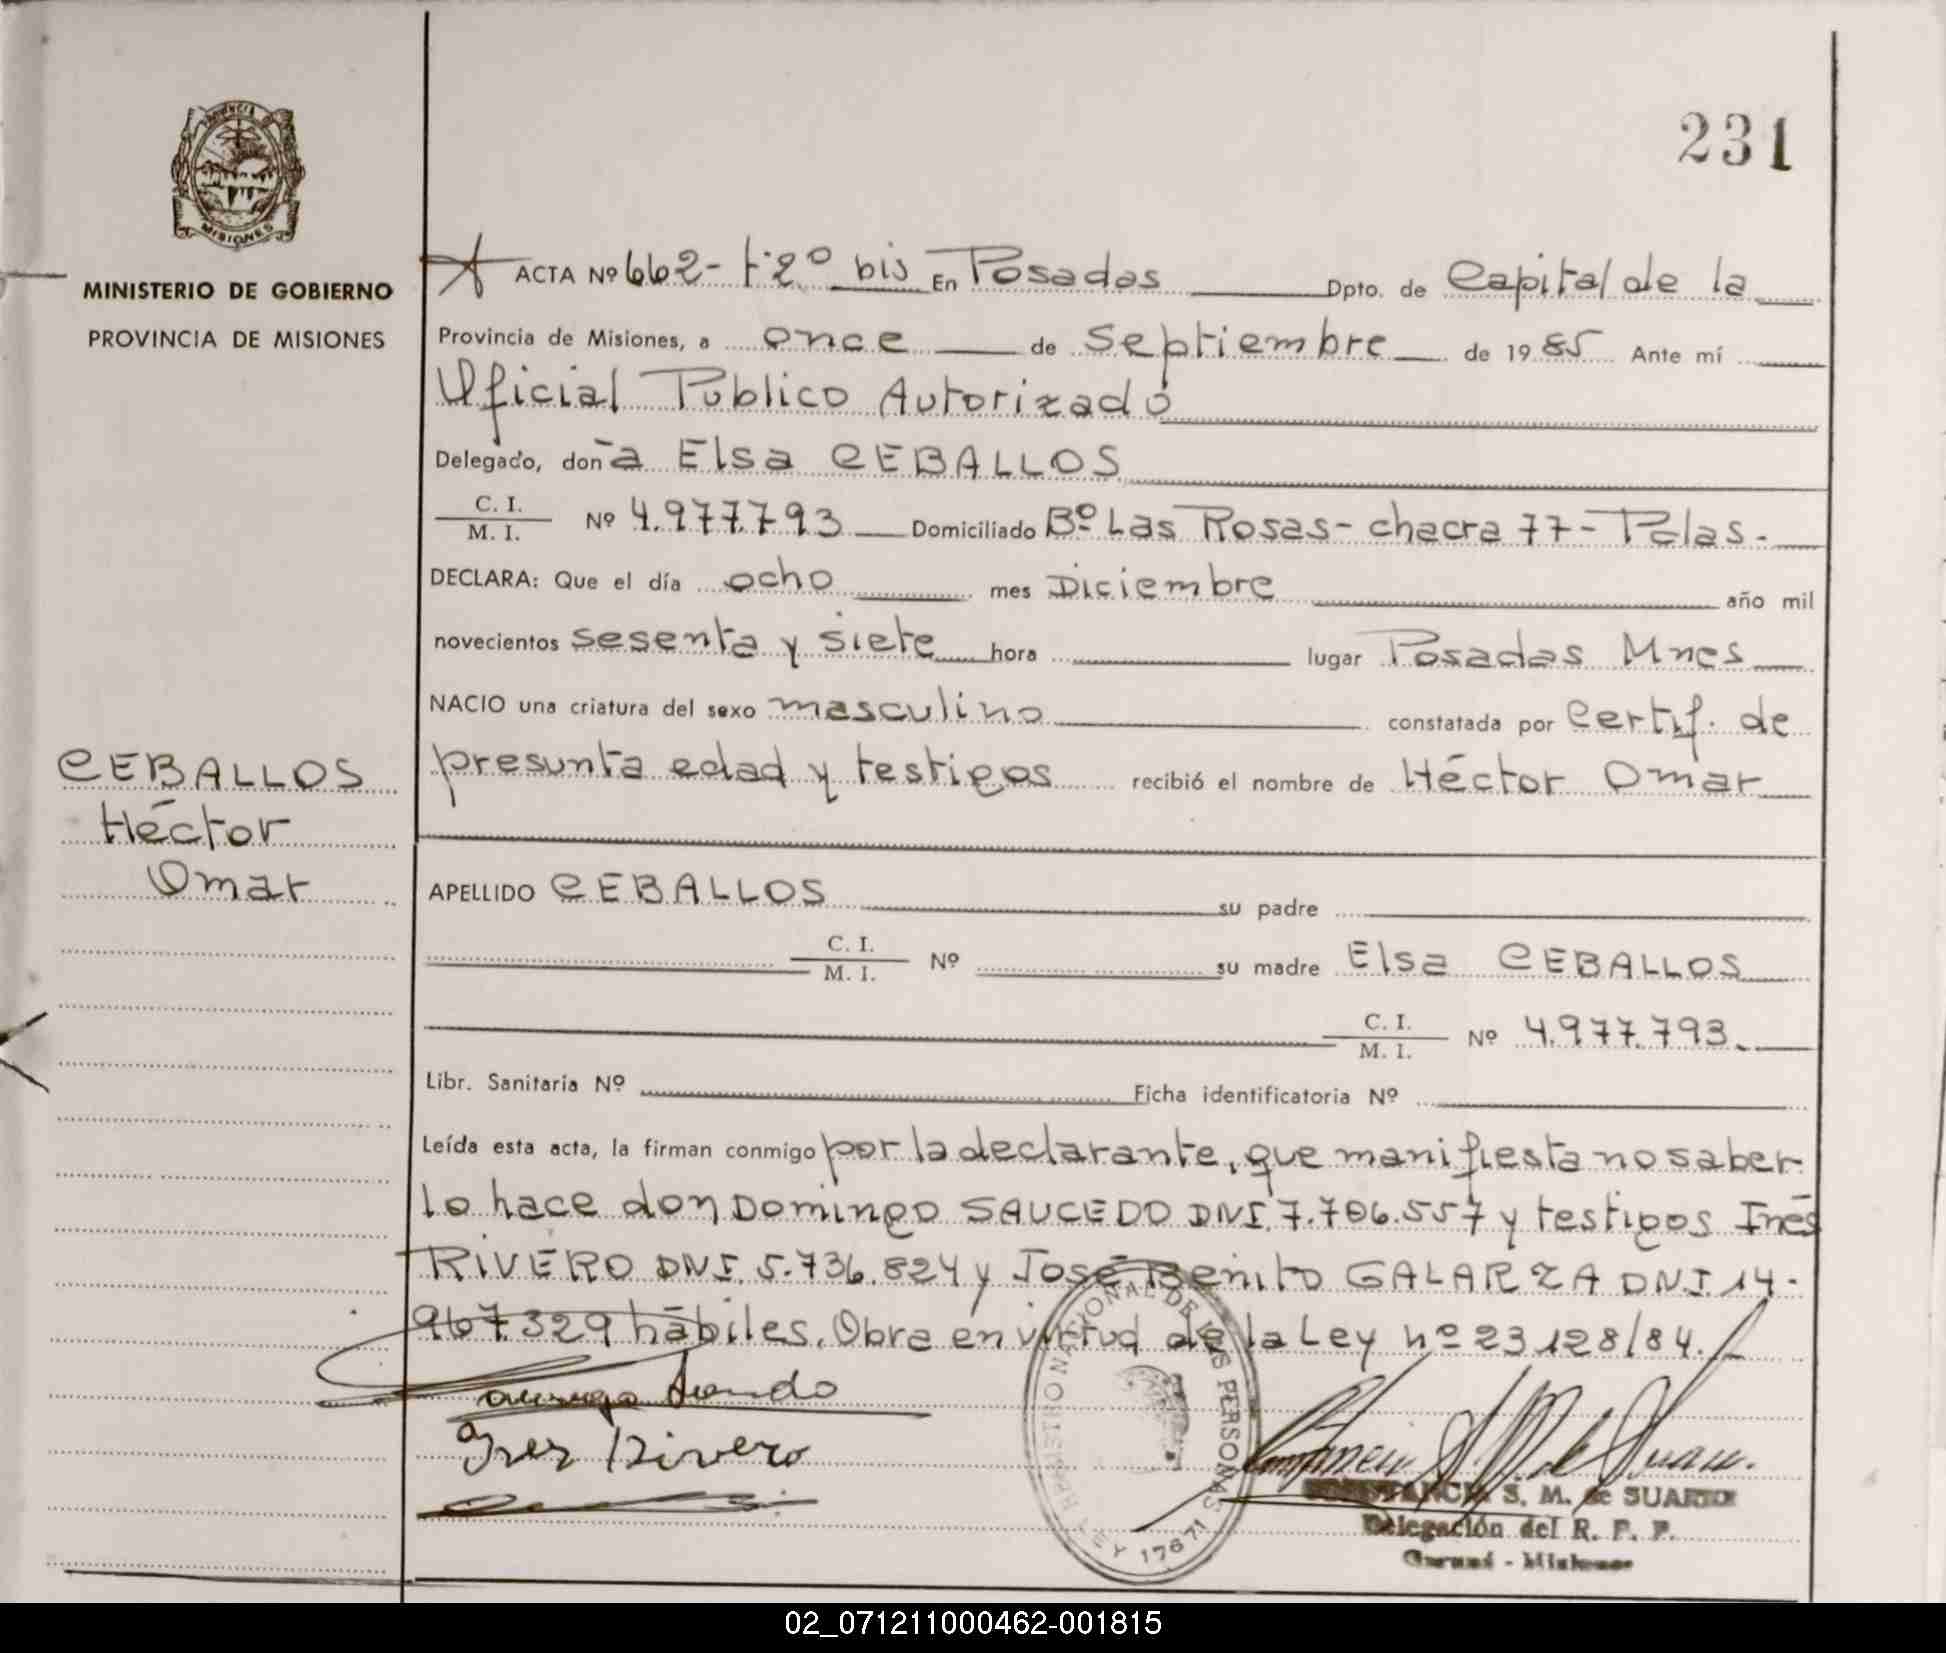 231
PROVINCIA DE
MISIONES
MINISTERIO DE GOBIERNO
PROVINCIA DE MISIONES
ACTA Nº 662- tº2º bis En Posadas Dpto. de Capital de la
Provincia de Misiones, a once de Septiembre de 1985 Ante mí
Oficial Público Autorizado
Delegado, doña Elsa CEBALLOS
C. I.
M. I. Nº 4.977.793 Domiciliado Bº Las Rosas- chacra 77- Pdas.
DECLARA: Que el día ocho mes Diciembre año mil
novecientos sesenta y siete hora lugar Posadas Mnes
NACIO una criatura del sexo masculino constatada por Certif. de
presunta edad y testigos recibió el nombre de Héctor Omar
CEBALLOS
Héctor
Omar
APELLIDO CEBALLOS su padre
C. I.
M. I. Nº su madre Elsa CEBALLOS
C. I.
M. I. Nº 4.977.793.
Libr. Sanitaria Nº Ficha identificatoria Nº
Leída esta acta, la firman conmigo por la declarante, que manifiesta no saber
lo hace don Domingo SAUCEDO DNI. 7.706.557 y testigos Inés
RIVERO DNI. 5.736.824 y José Benito GALARZA DNI. 14.
967.329 hábiles. Obra en virtud de la Ley nº 23128/84.
Inez Rivero
REGISTRO NACIONAL DE LAS PERSONAS
LEY 17671
S. M. de SUAREZ
Delegación del R. P. P.
02_071211000462-001815